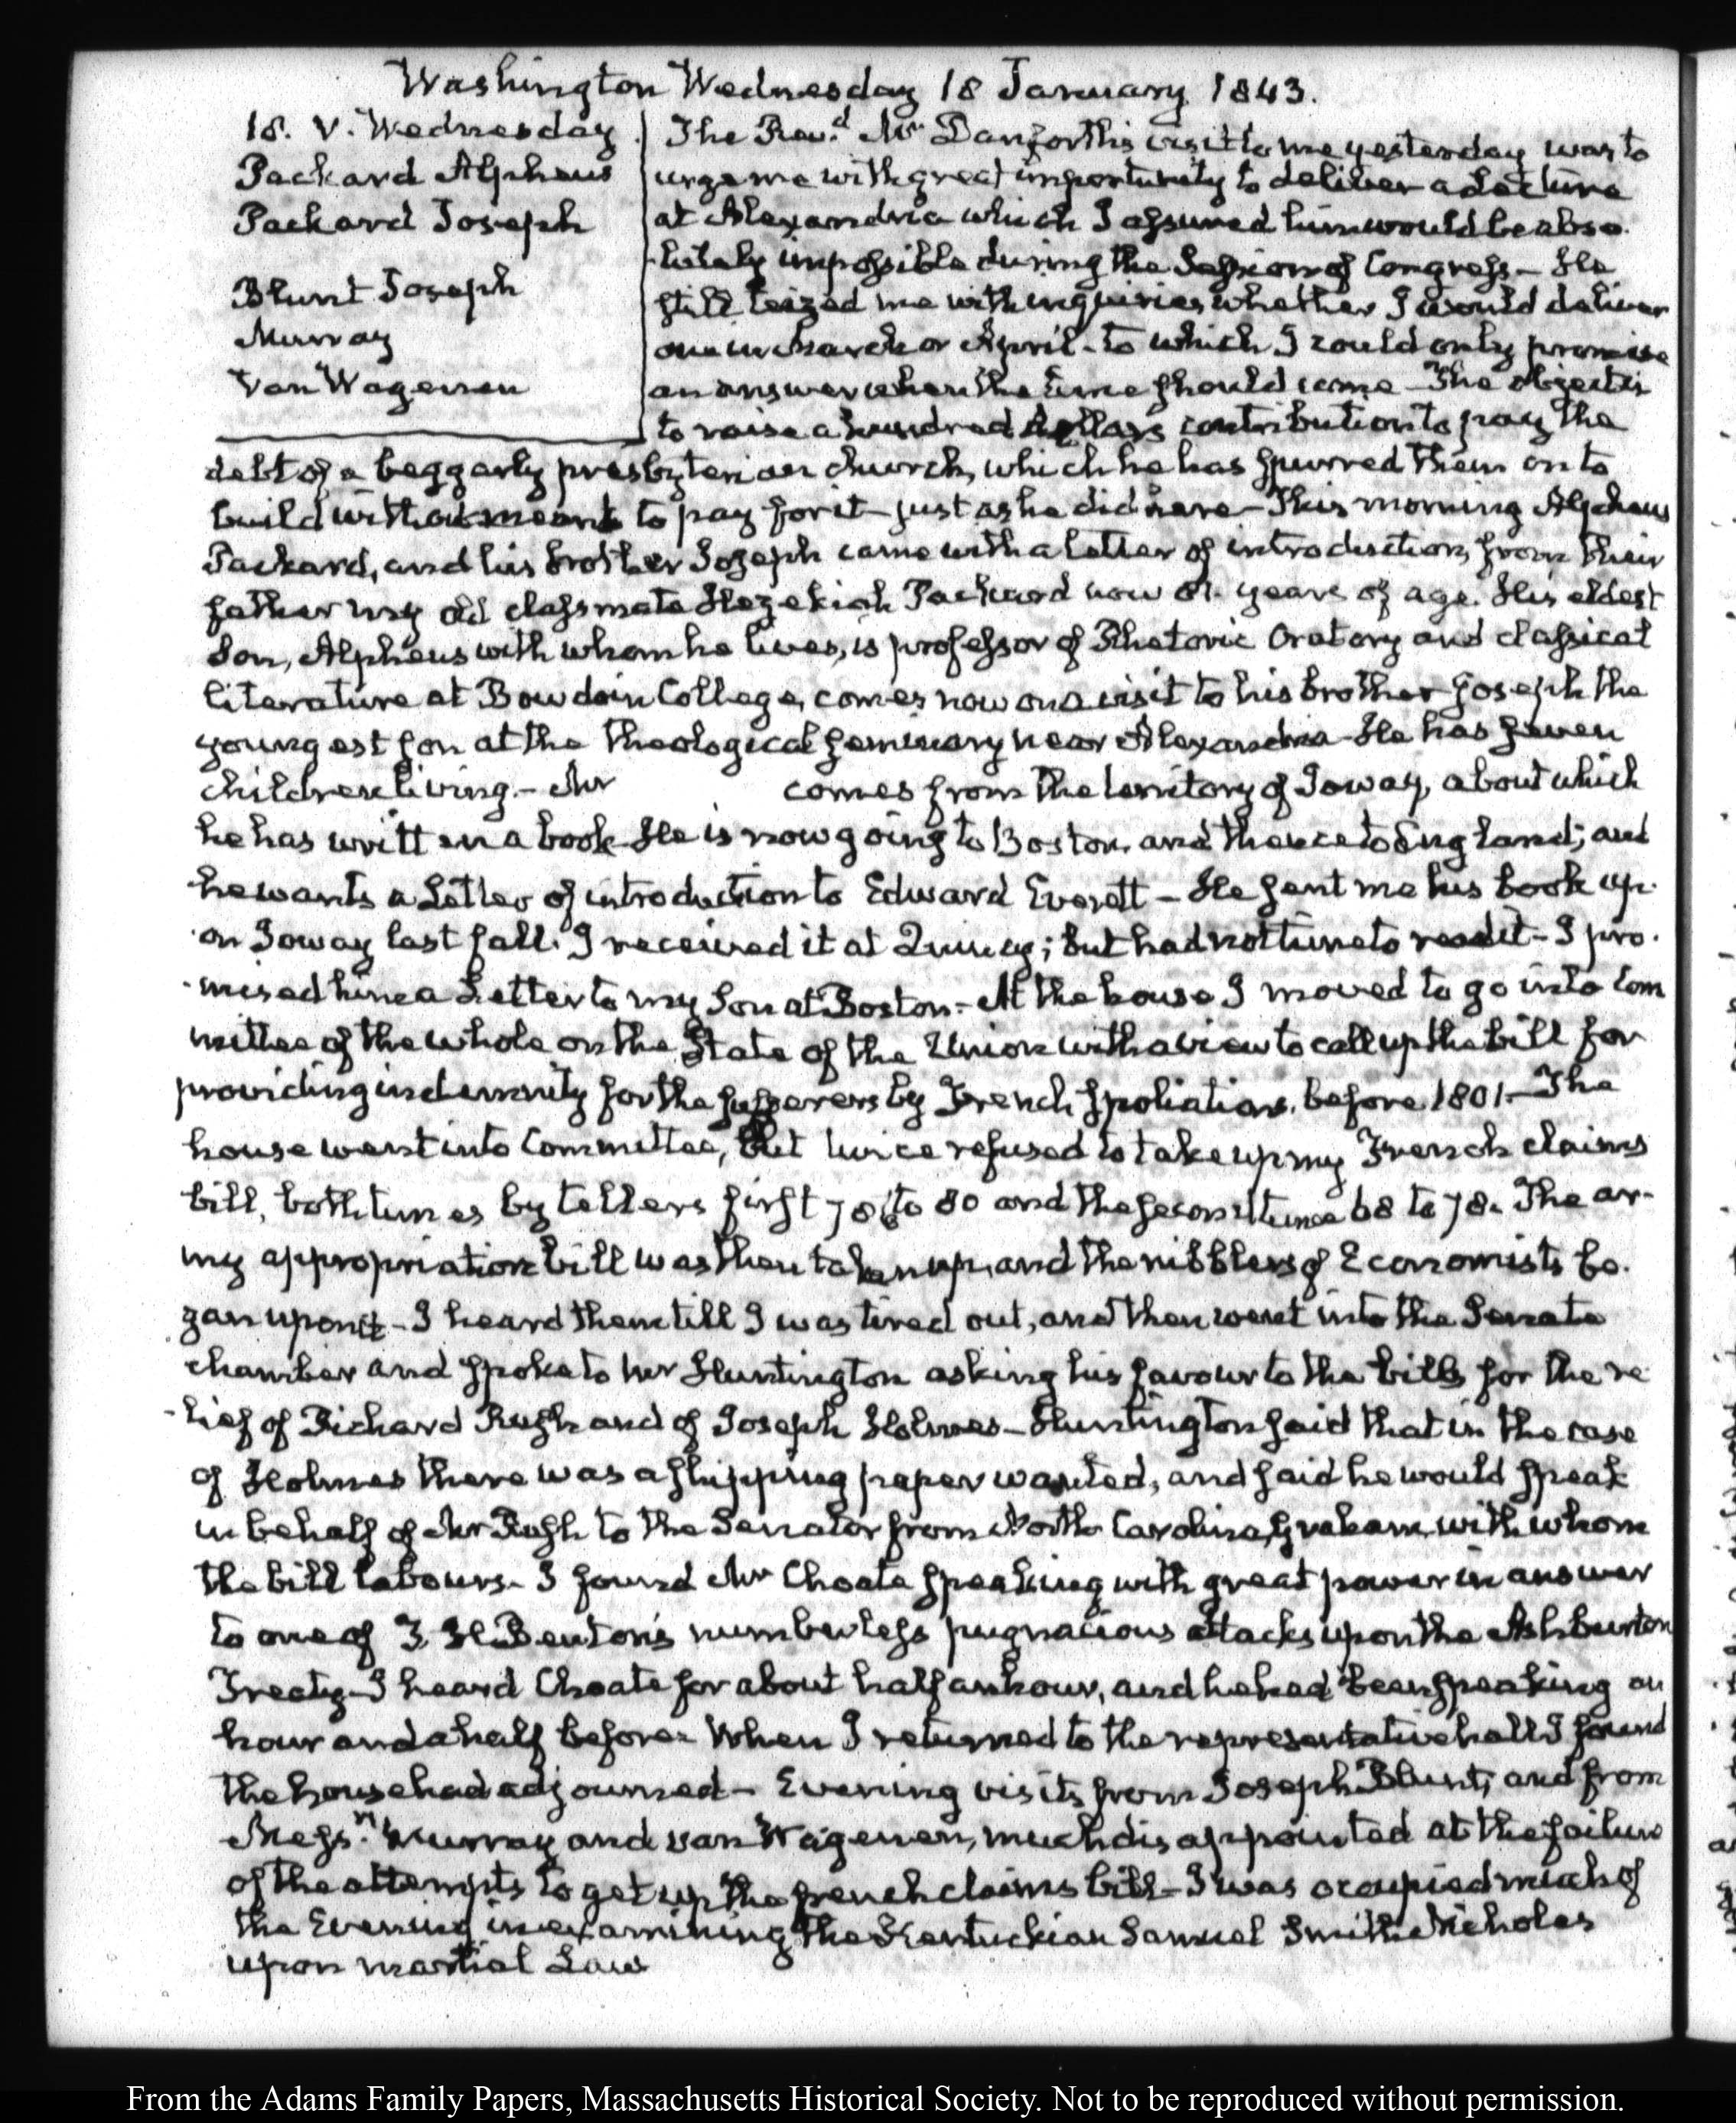 Washington Wednesday 18 January 1843.
18. V. Wednesday
Packard Alpheus
Packard Joseph
Blunt Joseph
Murray
Van Wagenen
The Rev.d Mr Danforth's visit to me yesterday was to
urge me with great importunity to deliver a Lecture
at Alexandria which I assured him would be abso-
-lutely impossible during the Session of Congress – He
still teized me with inquiries whether I would deliver
one in March or April - to which I could only promise
an answer when the time should come – The object is
to raise a hundred dollars contribution to pay the
debt of a beggarly presbyterian church, which he has spurred them on to
build without means to pay for it – just as he did here – This morning Alpheus
Packard, and his brother Joseph came with a letter of introduction, from their
father my old classmate Hezekiah Packard now 81 years of age. His eldest
Son, Alpheus with whom he lives, is professor of Rhetoric Oratory and classical
literature at Bowdoin College, comes now on a visit to his brother Joseph the
youngest son at the Theological Seminary near Alexandria – He has seven
children living. – Mr comes from the territory of Ioway, about which
he has written a book – He is now going to Boston, and thence to England; and
he wants a Letter of introduction to Edward Everett – He sent me his book up-
-on Ioway last fall. I received it at Quincy; but had not time to read it – I pro-
-mised him a Letter to my Son at Boston – At the house I moved to go into Com
mittee of the whole on the State of the Union with a view to call up the bill for
providing indemnity for the sufferers by French spoliations, before 1801 – The
house went into Committee, but twice refused to take up my French claims
bill, both times by tellers first 76 to 80 and the second time 68 to 78. The ar-
my appropriation bill was then taken up, and the nibblers of Economists be-
gan upon it – I heard them till I was tired out, and then went into the Senate
chamber and spoke to Mr Huntington asking his favour to the bills for the re
-lief of Richard Rush and of Joseph Holmes – Huntington said that in the case
of Holmes there was a shipping paper wanted, and said he would speak
in behalf of Mr Rush to the Senator from North Carolina, Graham, with whom
the bill labours – I found Mr Choate speaking with great power in answer
to one of T. H. Benton's numberless pugnacious attacks upon the Ashburton
Treaty – I heard Choate for about half an hour, and he had been speaking an
hour and a half before – When I returned to the representative hall I found
the house had adjourned – Evening visits from Joseph Blunt, and from
Messrs. Murray and van Wagenen, much disappointed at the failure
of the attempts to get up the french claims bill – I was occupied much of
the Evening in examining the Kentuckian Samuel Smith Nicholas
upon martial Law
From the Adams Family Papers, Massachusetts Historical Society. Not to be reproduced without permission.